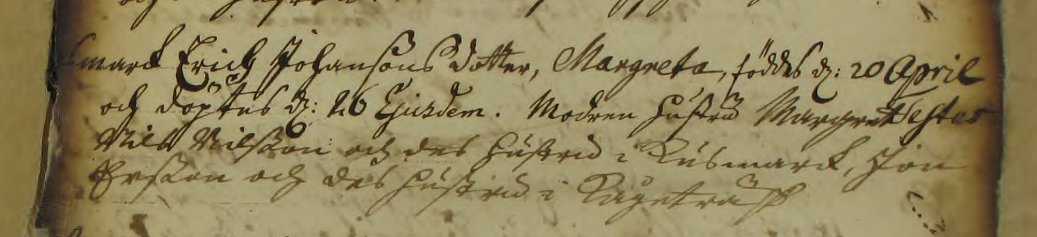 smark Erich Johansons dotter, Margreta, föddes d: 20 April
och döptes d: 26 Ejusdem. Modren hustru Margreta Testes
Nils Nilsson och des hustru i Kusmarck, Jon
Ersson och des hustru i Kågeträsk